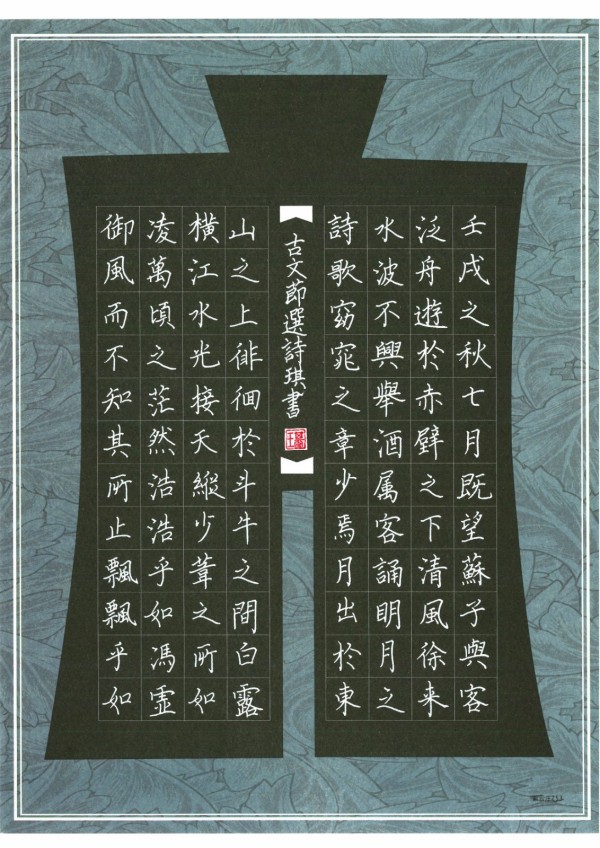 壬戌之秋七月既望蘇子與客
泛舟遊於赤壁之下清風徐来
水波不興舉酒属客誦明月之
詩歌窈窕之章少焉月出於東
古文節選詩琪書
山之上徘徊於斗牛之間白露
橫江水光接天縱少葦之所如
凌萬頃之茫然浩浩乎如馮虛
御風而不知其所止飄飄乎如